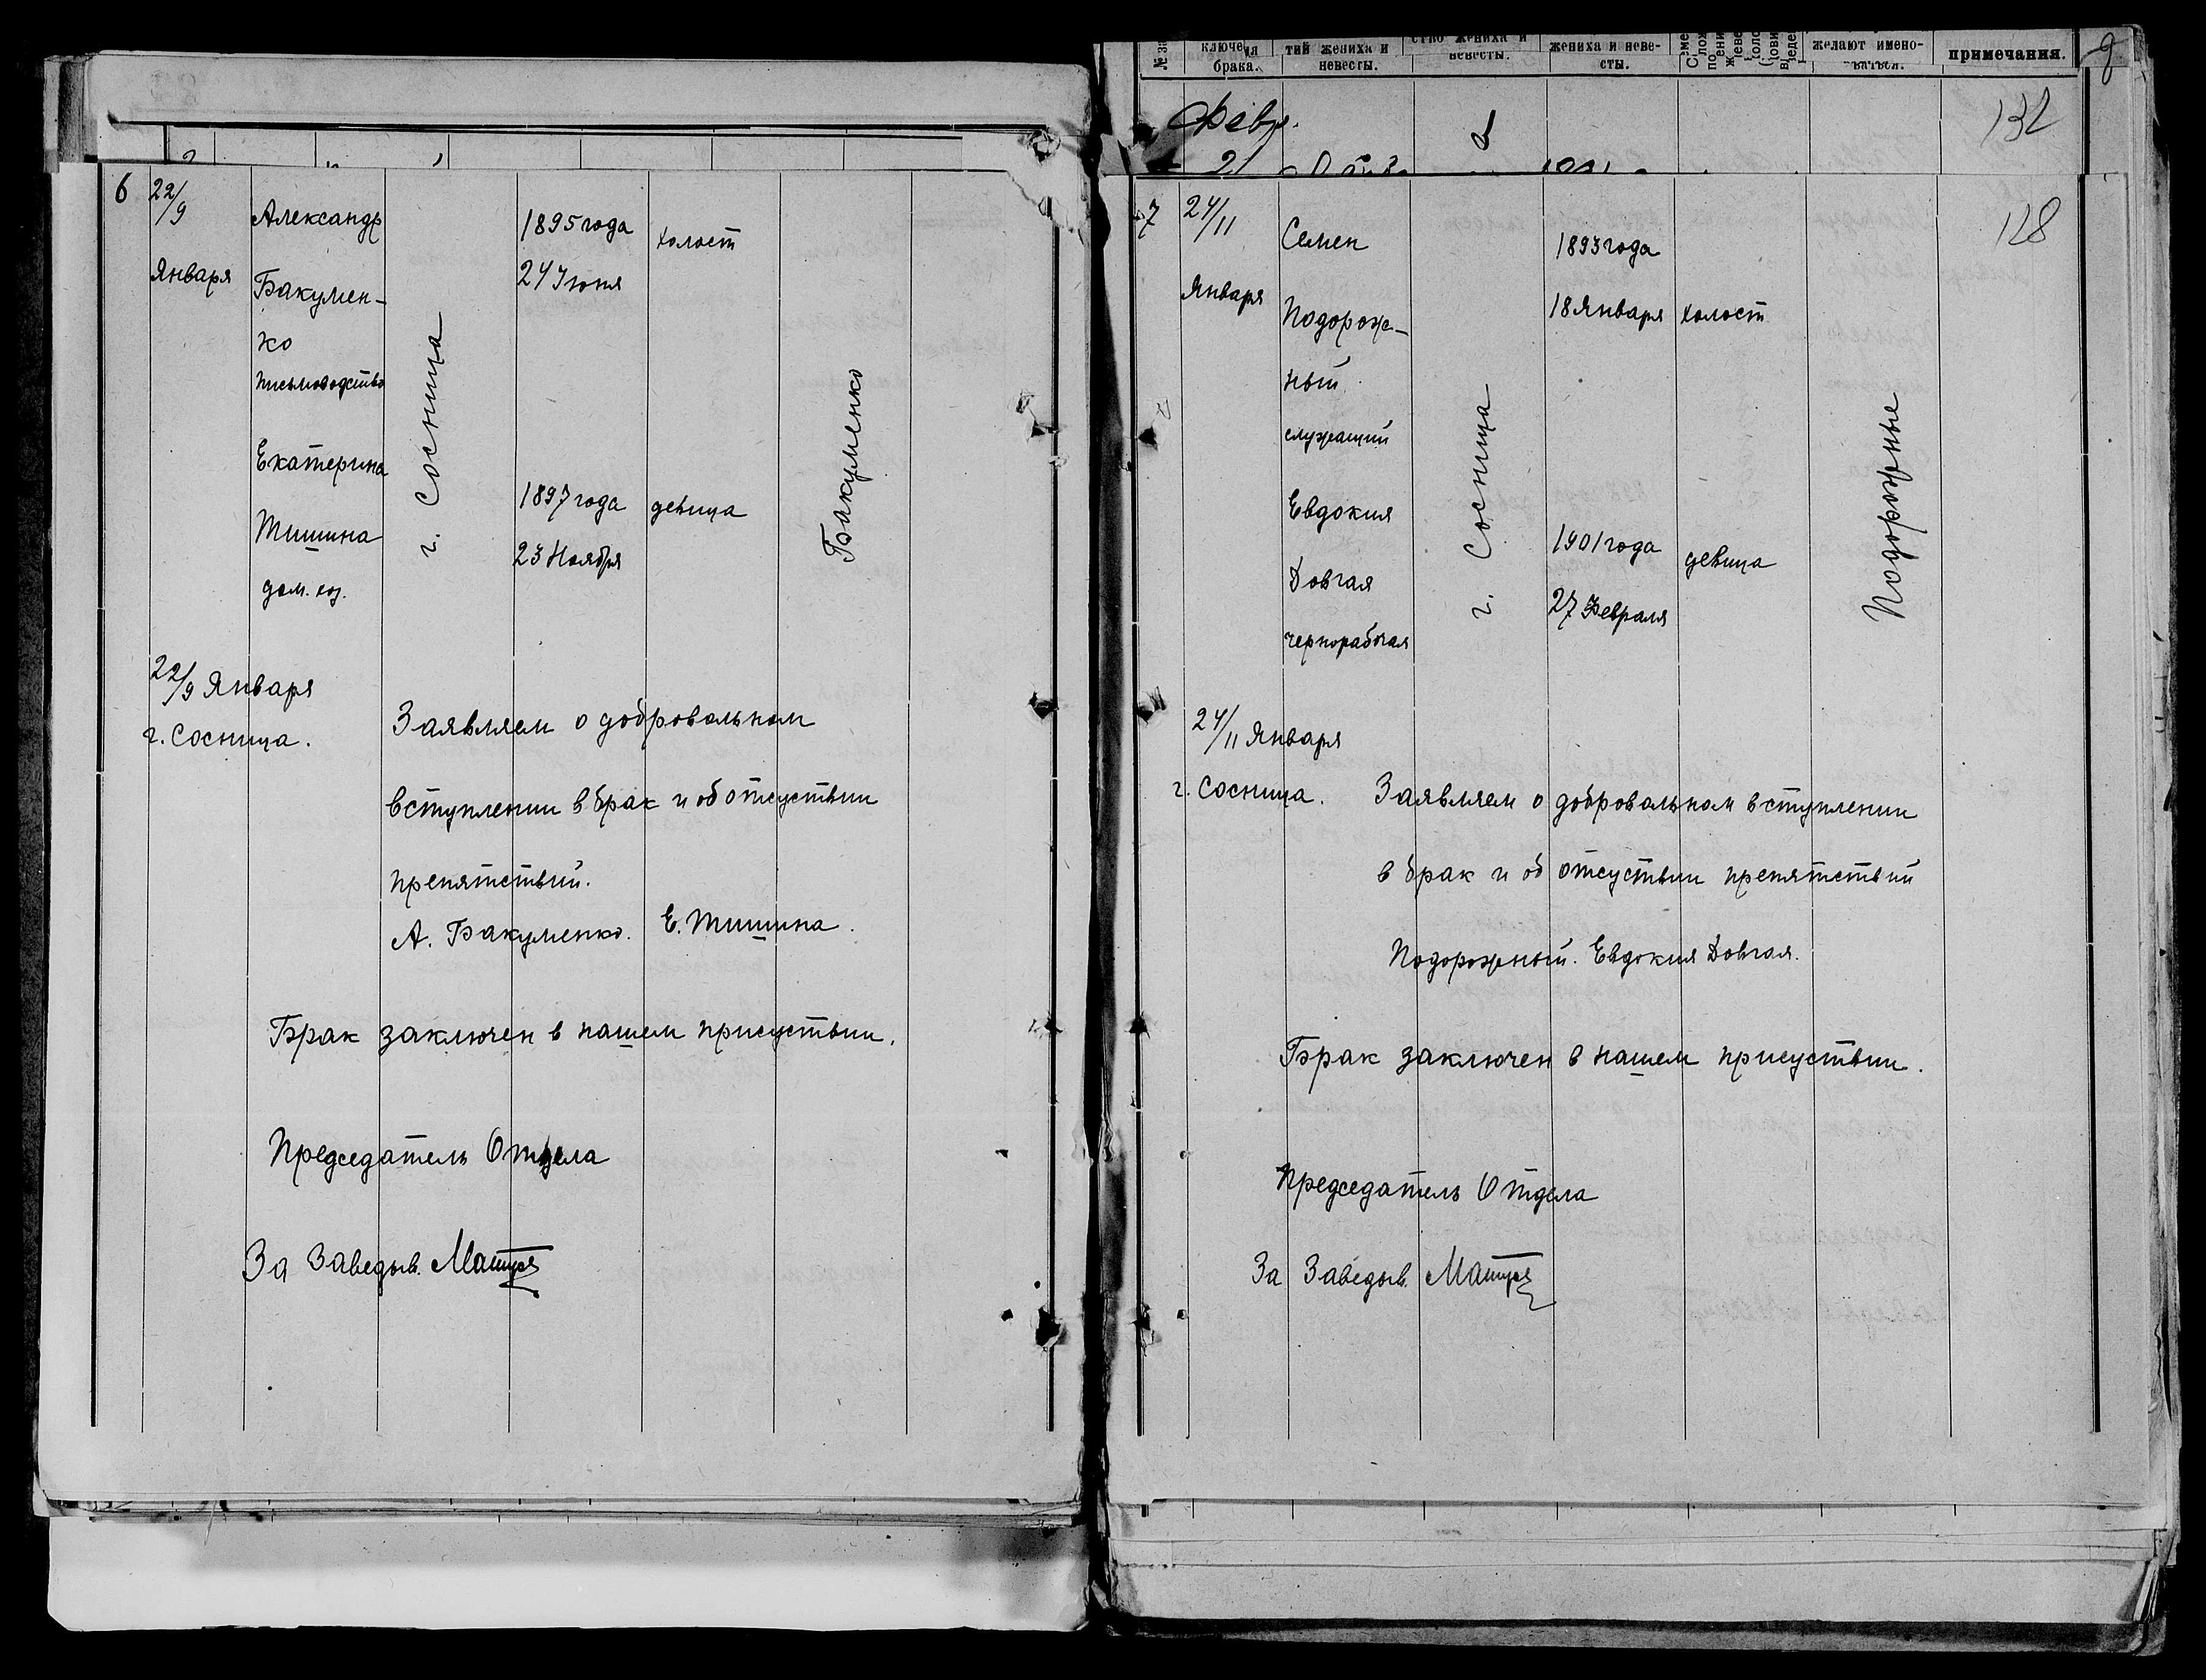 6
22/9
Января
Александр
Бакумен-
ко
письмоводство
Екатерина
Тишина
дом. хоз.
г. Сосница
1895 года
24 Июня
1897 года
23 Ноября
холост
девица
Бакуменко
22/9 Января
г. Сосница.
Заявляем о добровольном
вступлении в брак и об отсуствии
препятствий.
А. Бакуменко. Е. Тишина.
Брак заключен в нашем присуствии.
Председатель Отдела
За Заведыв.
№ за
ключения
брака.
тий жениха и
невесты.
ство жениха и
невесты.
жениха и неве-
сты.
желают имено-
ваться.
примечания.
Февр.
21
132
7
24/11
Января
Семен
Подорож-
ный
служащий
Евдокия
Довгая
чернорабочая
г. Сосница
1893 года
18 Января
1901 года
27 Февраля
холост
девица
Подорожные
128
24/11 Января
г. Сосница.
Заявляем о добровольном вступлении
в брак и об отсуствии препятствий
Подорожный. Евдокия Довгая.
Брак заключен в нашем присуствии.
Председатель Отдела
За Заведыв.